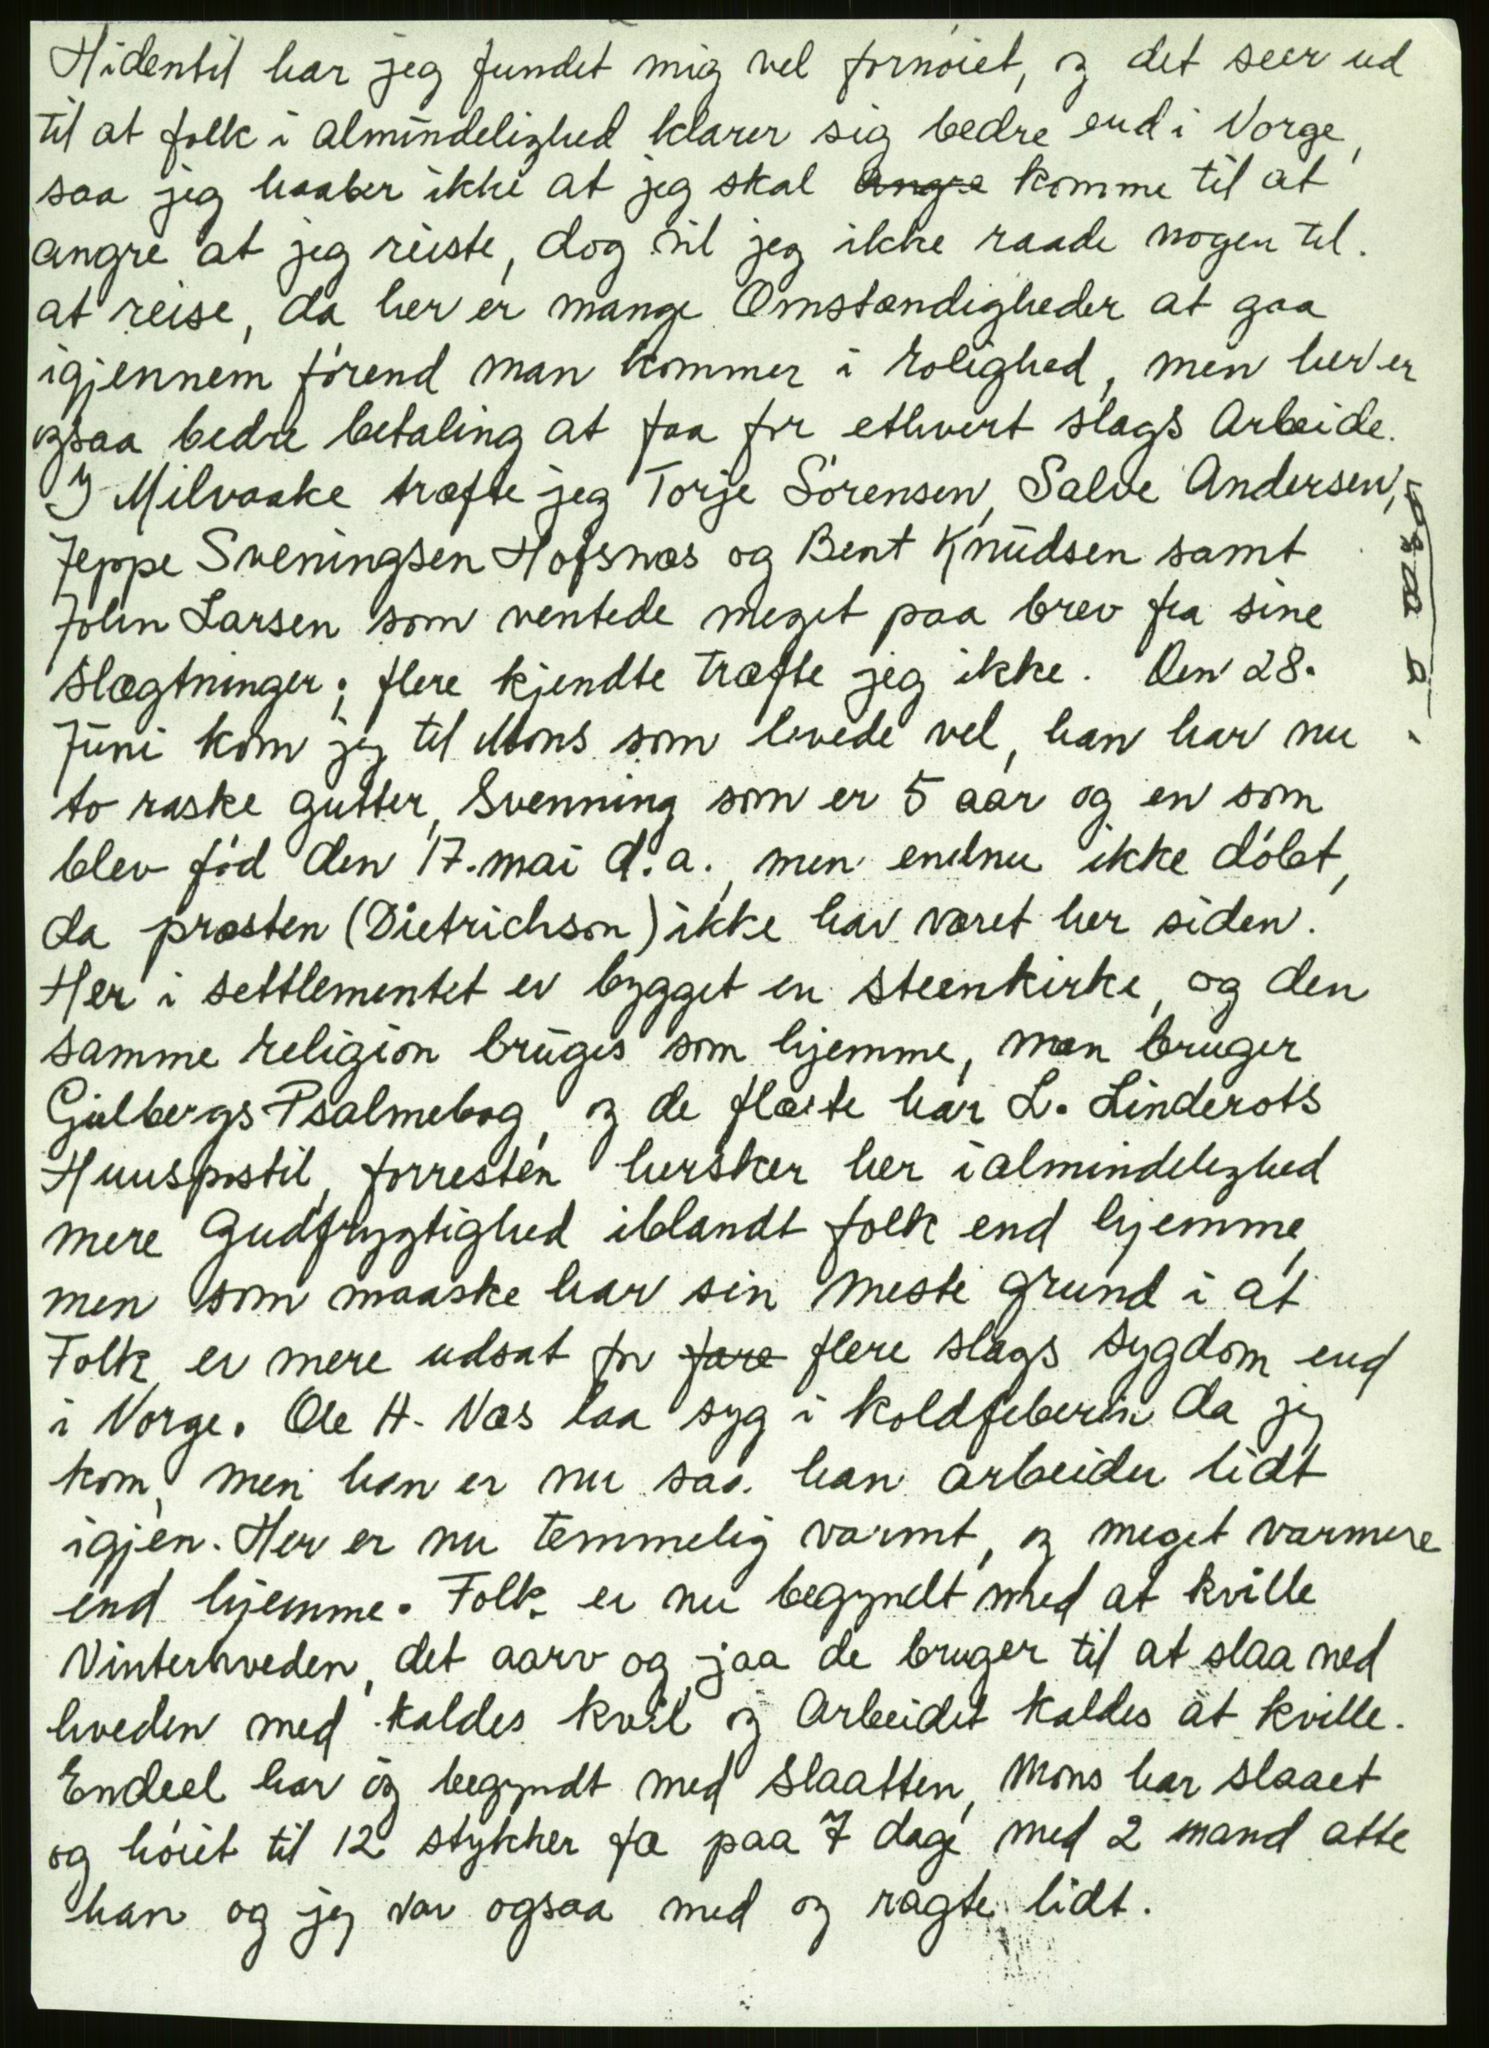 Hidentil har jeg fundet mig vel fornöiet, og det seer ud
til at folk i almindelighed klarer sig bedre end i Norge,
saa jeg haaber ikke at jeg skal angre komme til at
angre at jeg reiste, dog vil jeg ikke raade nogen til.
at reise, da her er mange Omstændigheder at gaa
igjennem förend man kommer i rolighed, men her er
ogsaa bedre betaling at faa for ethvert slags Arbeide.
I Milvaake træfte jeg Torje Sörensen, Salve Andersen,
Jeppe Sveningsen Hofsnæs og Bent Knudsen samt
John Larsen som ventede meget paa brev fra sine
slægtninger; flere kjendte træfte jeg ikke. Den 28.
Juni kom jeg til Mons som levede vel, han har nu
to raske gutter, Svenning som er 5 aar og en som
blev föd den 17. mai d.a., men endnu ikke döbt,
da præsten (Dietrichson) ikke har været her siden.
Her i settlementet er bygget en steenkirke, og den
samme religion bruges som hjemme, man bruger
Gulbergs Psalmebog, og de fleste har L. Linderots
Huuspostil, forresten hersker her i almindelighed
mere Gudfrygtighed iblandt folk end hjemme,
men som maaske har sin meste grund i at
Folk er mere udsat for fare flere slags sygdom end
i Norge. Ole H. Næs laa syg i koldfeberen da jeg
kom, men han er nu saa han arbeider lidt
igjen. Her er nu temmelig varmt, og meget varmere
end hjemme. Folk er nu begyndt med at kville
Vinterhveden, det aarv og jaa de bruger til at slaa ned
hveden med kaldes kvil og Arbeidet kaldes at kville.
Endeel har og begyndt med Slaatten, Mons har slaaet
og höiet til 12 stykker fæ paa 7 dage med 2 mand atte
han og jeg var ogsaa med og ragte lidt.